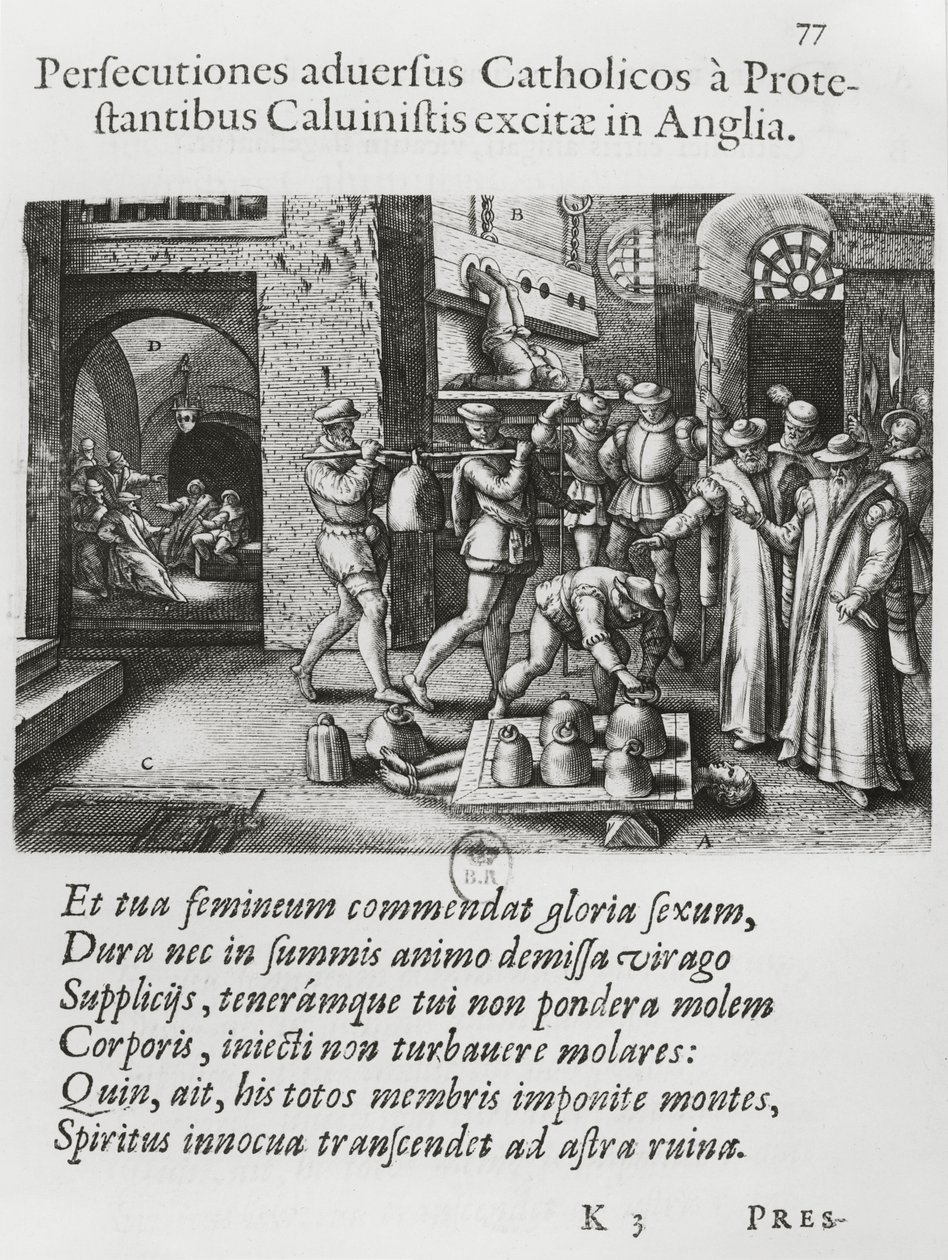 77
Perſecutiones aduerſus Catholicos à Prote-
ſtantibus Caluiniſtis excitæ in Anglia.
B
D
C
A
B.R
Et tua femineum commendat gloria ſexum,
Dura nec in ſummis animo demiſſa virago
Supplicijs, tenerámque tui non pondera molem
Corporis, iniecti non turbauere molares:
Quin, ait, his totos membris imponite montes,
Spiritus innocua tranſcendet ad aſtra ruina.
K 3 PRES-